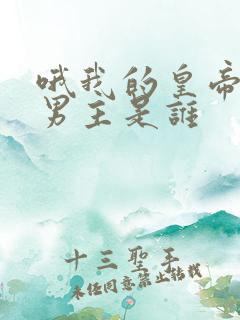 哦我的皇帝
男主是誰
十三聖手
未任同意禁止转载